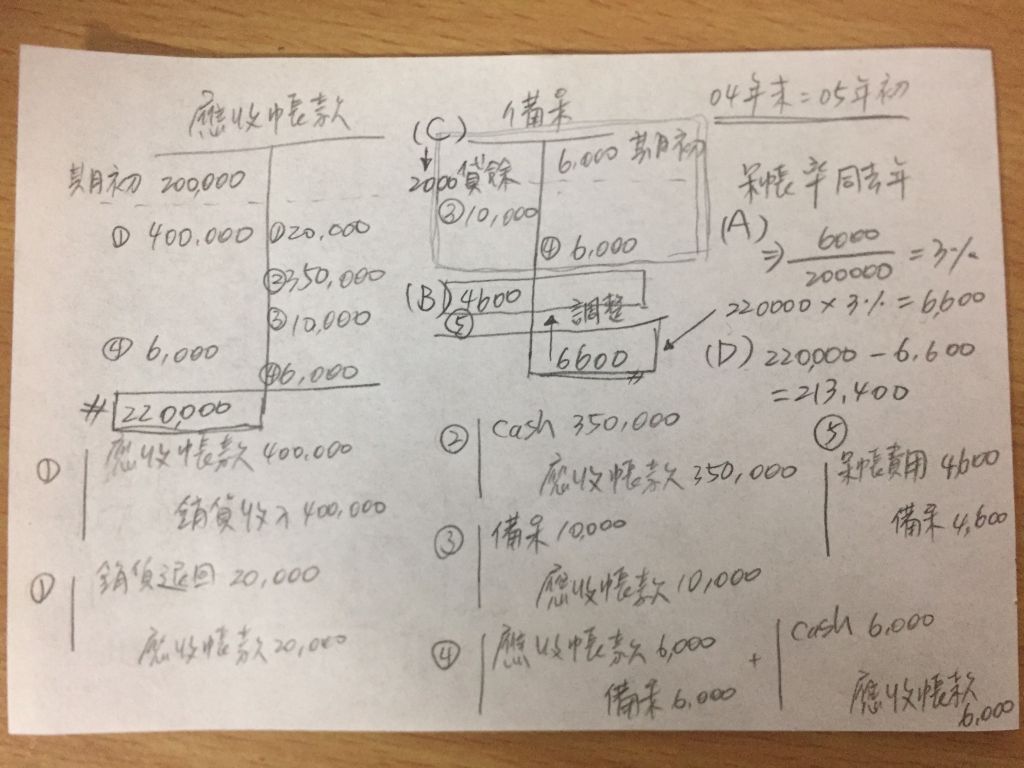 應收帳款
期初 200,000
① 400,000
①20,000
②350,000
③10,000
④ 6,000
④6,000
# 220,000
備呆
(C)
6,000 期初
2000貸餘
③10,000
④ 6,000
(B) 4600
⑤
調整
6600
04年末=05年初
呆帳率同去年
(A)
⇒ 6000/200000 = 3%
220000 × 3% = 6,600
(D) 220,000 - 6,600
= 213,400
① 應收帳款 400,000
銷貨收入 400,000
① 銷貨退回 20,000
應收帳款 20,000
② cash 350,000
應收帳款 350,000
③ 備呆 10,000
應收帳款 10,000
④ 應收帳款 6,000
備呆 6,000
+
cash 6,000
應收帳款
6,000
⑤
呆帳費用 4600
備呆 4,600